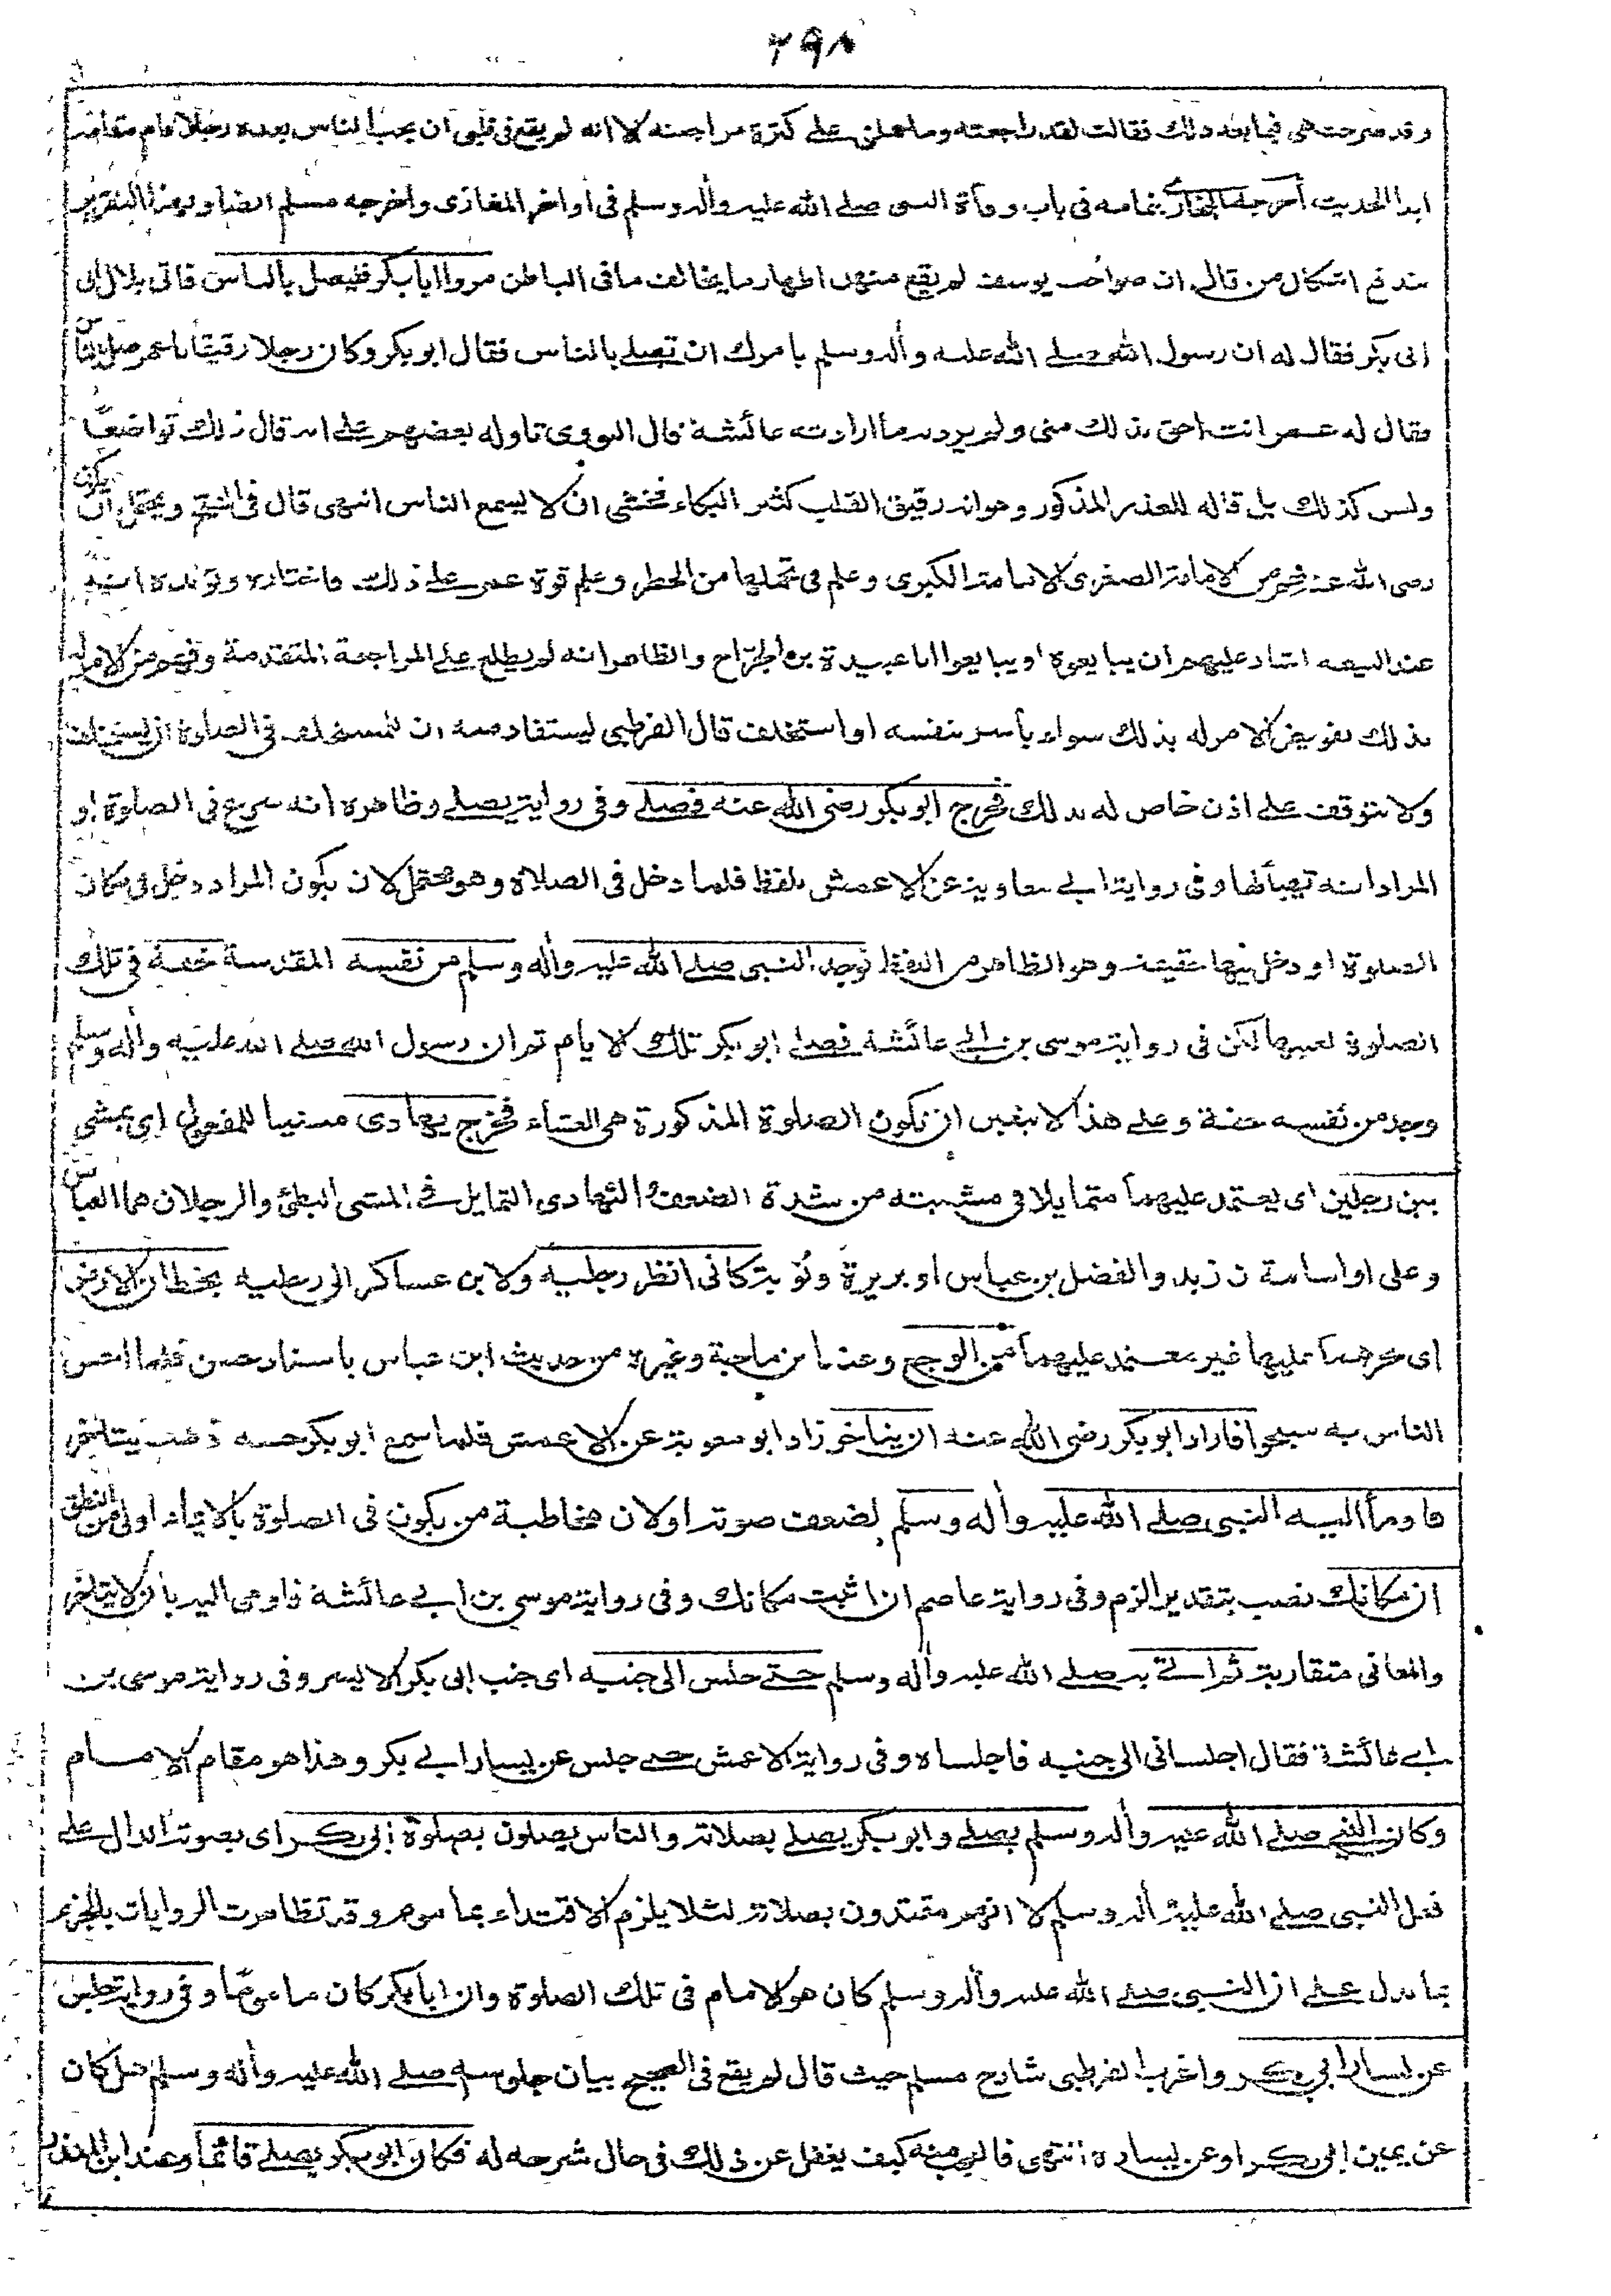 ٢٩٨
وقد صرحت هي فيما بعد ذلك فقالت لقد راجعته وما حملني على كثرة مراجعته الا انه لم يقع في قلبي ان يحب الناس بعده رجلا قام مقامه
ابدا الحديث أخرجه البخاري بتمامه في باب وفاة النبي صلى الله عليه وأله وسلم في أواخر المغازي واخرجه مسلم ايضا وبهذا التقرير
يندفع اشكال من قال ان صواحب يوسف لم يقع منهن اظهار ما يخالف ما في الباطن مروا ابا بكر فليصل بالناس فاتى بلال الى
ابى بكر فقال له ان رسول الله صلى الله عليه وأله وسلم يامرك ان تصلى بالناس فقال ابو بكر وكان رجلا رقيقا يا عمر صل بالناس
فقال له عمر انت احق بذلك مني ولم يرد به ما ارادته عائشة قال النووى تاوله بعضهم على انه قال ذلك تواضعًا
وليس كذلك بل قاله للعذر المذكور وهو انه رقيق القلب كثير البكاء فخشى ان لا يسمع الناس انتهى قال في الفتح ويحتمل ان يكون
رضى الله عنه فهم من الامامة الصغرى الامامة الكبرى وعلم في تحملها من الخطر وعلم قوة عمر على ذلك فاختاره ويؤيده انه
عند البيعه اشار عليهم ان يبايعوه او يبايعوا ابا عبيدة بن الجراح والظاهر انه لم يطلع على المراجعة المتقدمة وفهم من الامر له
بذلك تفويض الامر له بذلك سواء باشر بنفسه او استخلف قال القرطبى يستفاد منه ان للمستخلف فى الصلوة ان يستخلف
ولا يتوقف على اذن خاص له بذلك فخرج ابو بكر رضى الله عنه فصلى وفى رواية يصلى وظاهره انه شرع فى الصلوة او
المراد انه تهيأ لها وفى رواية ابى معاوية عن الاعمش بلفظ فلما دخل فى الصلاة وهو محتمل لان يكون المراد دخل فى مكان
الصلوة او دخل فيها حقيقة وهو الظاهر من اللفظ فوجد النبى صلى الله عليه وأله وسلم من نفسه المقدسة خفة فى تلك
الصلوة لعينها لكن فى رواية موسى بن ابى عائشة فصلى ابو بكر تلك الايام ثم ان رسول الله صلى الله عليه وأله وسلم
وجد من نفسه خفة وعلى هذا لا يتعين ان تكون الصلوة المذكورة هى العشاء فخرج يهادى مبنيا للمفعول اى يمشى
بين رجلين اى يعتمد عليهما متمايلا فى مشيته من شدة الضعف والتهادى التمايل فى المشى البطئ والرجلان هما العباس
وعلى او اسامة بن زيد والفضل بن عباس او بريرة ونوبة كانى انظر رجليه ولابن عساكر الى رجليه يخطان الارض
اى يجرهما عليها غير معتمد عليهما من الوجع وعند ابن ماجة وغيره من حديث ابن عباس باسناد حسن فلما احس
الناس به سبحوا فاراد ابو بكر رضى الله عنه ان يتاخر زاد ابو معوية عن الاعمش فلما سمع ابو بكر حسه ذهب يتاخر
فاومأ اليه النبى صلى الله عليه وأله وسلم لضعف صوته او لان مخاطبة من يكون فى الصلوة بالايماء اولى من النطق
ان مكانك نصب بتقدير الزم وفى رواية عاصم ان اثبت مكانك وفى رواية موسى بن ابى عائشة فاومى اليه بان لا يتاخر
والمعانى متقاربة ثم اتى به صلى الله عليه وأله وسلم حتى جلس الى جنبه اى جنب ابى بكر الايسر وفى رواية موسى بن
ابى عائشة فقال اجلسانى الى جنبه فاجلساه وفى رواية الاعمش حتى جلس عن يسار ابى بكر وهذا هو مقام الامام
وكان النبى صلى الله عليه وأله وسلم يصلى وابو بكر يصلى بصلاته والناس يصلون بصلوة ابى بكر اى بصوته الدال على
فعل النبى صلى الله عليه وأله وسلم لا انهم مقتدون بصلاته لئلا يلزم الاقتداء بماموم وقد تظاهرت الروايات بالجزم
بما يدل على ان النبى صلى الله عليه وأله وسلم كان هو الامام فى تلك الصلوة وان ابا بكر كان ماموما وفى رواية جلس
عن يسار ابى بكر واغرب القرطبى شارح مسلم حيث قال لم يقع فى الصحيح بيان جلوسه صلى الله عليه وأله وسلم هل كان
عن يمين ابى بكر او عن يساره انتهى فالعجب منه كيف يغفل عن ذلك فى حال شرحه له فكان ابو بكر يصلى قائما وعند ابن المنذر